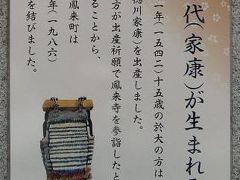 代（家康）が生まれ
一年（一五四二）十五歳の於大の方は
徳川家康を出産しました。
方が出産祈願で鳳来寺を参詣したと
ることから、
鳳来町は
年（一九八六）
を結びました。